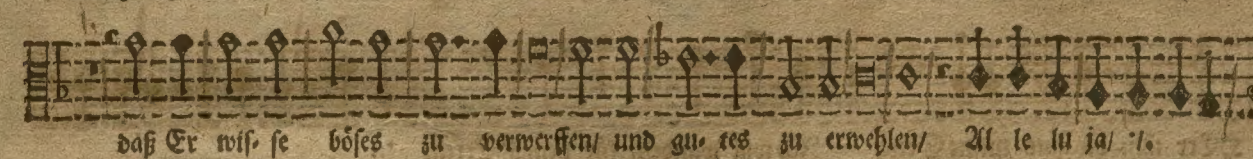 daß Er wiſ- ſe böſes zu verwerffen/ und gu- tes zu erwehlen/ Al le lu ja/ ·/.